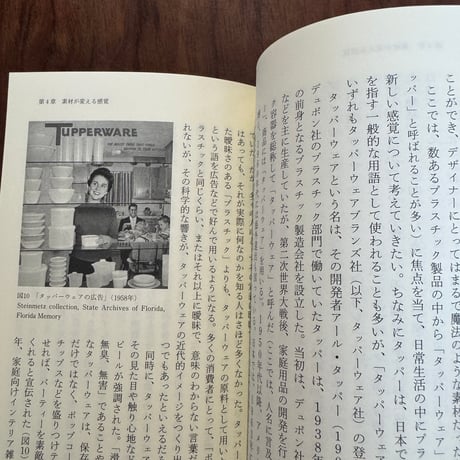 ことができ、デザイナー
まるで魔法のような素材だ
ここでは、数あるプラスチック製品の中から「タッパーウェア
ッパー」と呼ばれることが多い）に焦点を当て、日常生活の中にプラ
新しい感覚について考えていきたい。ちなみにタッパーは、日本で
を指す一般的な用語として使われることも多いが、「タッパーウェ
いずれもタッパーウェアブランズ社（以下、タッパーウェア社）の登
タッパーウェアという名は、その開発者アール・タッパー（190
デュポン社のプラスチック部門で働いていたタッパーは、1938年
の前身となるプラスチック製造会社を設立した。当初は、デュポン社
などを主に生産していたが、第二次世界大戦後、家庭用品の開発を行
ク容器を総称して「タッパーウェア」と呼んだ（ここでは、人名に言及
第4章 素材が変える感覚
TUPPERWARE
図10 「タッパーウェアの広告」（1958年）
Steinmetz collection, State Archives of Florida,
Florida Memory
はあっても、それが実際に何なのかを知る人はさほど多くなかった。タッパーは
た曖昧さのある「プラスチック」よりも、タッパーウェアの原料として用いら
という語を広告などで好んで用いるようになる。多くの消費者にとって、「
ラスチックと同じくらい、またはそれ以上に曖昧で、意味のわからない言葉だ
れないが、その科学的な響きが、タッパーウェアの近代的イメージをつくり出
つでもあったといえるだ
同時に、タッパーウェ
その見た目や触り心地な
ピールが強調された。潜
無臭、無害」であること
なタッパーウェアは、保存
だけではなく、ポップコー
チップスなどを盛りつけて
せれば、パーティーを素敵
くれると宣伝された（図10）
年、家庭向けインテリア雑